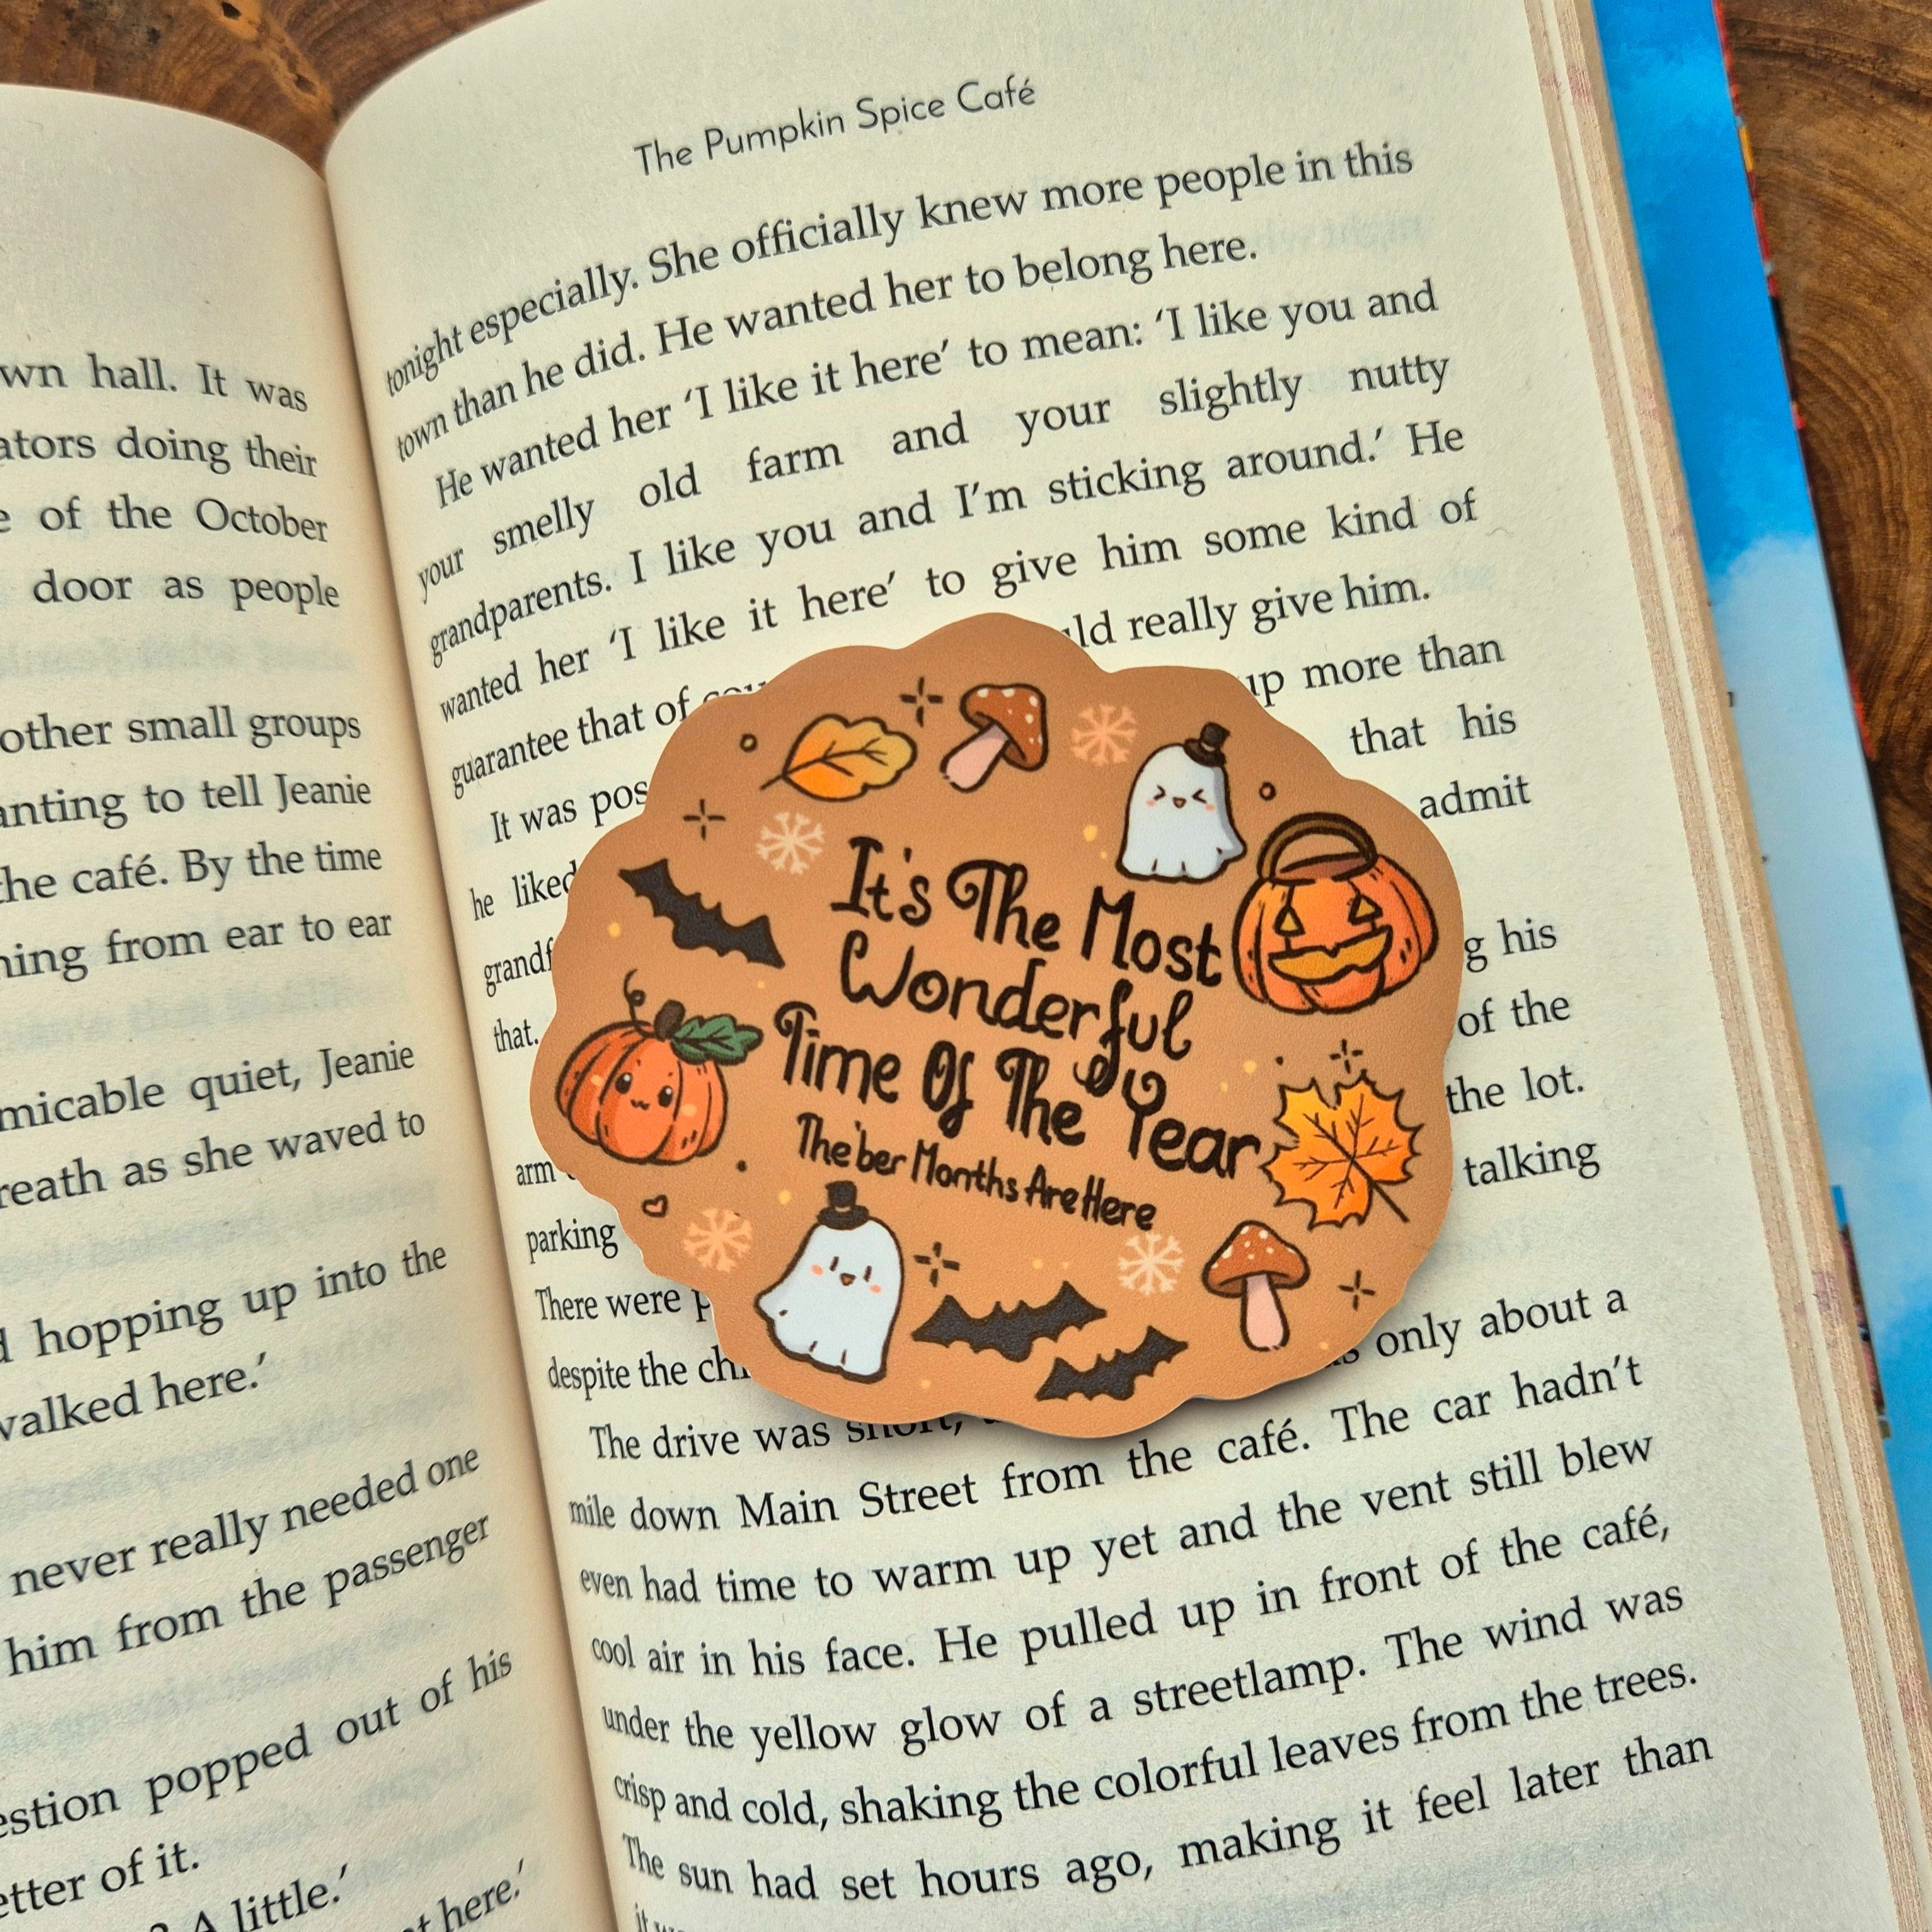 wn hall. It was
ators doing their
e of the October
door as people
other small groups
anting to tell Jeanie
he café. By the time
ning from ear to ear
micable quiet, Jeanie
reath as she waved to
d hopping up into the
valked here.’
never really needed one
him from the passenger
estion popped out of his
etter of it.
A little.’
t here.’
The Pumpkin Spice Café
tonight especially. She officially knew more people in this
town than he did. He wanted her to belong here.
He wanted her ‘I like it here’ to mean: ‘I like you and
your smelly old farm and your slightly nutty
grandparents. I like you and I’m sticking around.’ He
wanted her ‘I like it here’ to give him some kind of
guarantee that of cou ld really give him.
It was pos up more than
he liked that his
grandf admit
that.
g his
of the
arm the lot.
parking talking
There were p
despite the ch
The drive was short, s only about a
mile down Main Street from the café. The car hadn’t
even had time to warm up yet and the vent still blew
cool air in his face. He pulled up in front of the café,
under the yellow glow of a streetlamp. The wind was
crisp and cold, shaking the colorful leaves from the trees.
The sun had set hours ago, making it feel later than
It's The Most
Wonderful
Time Of The Year
The'ber Months Are Here